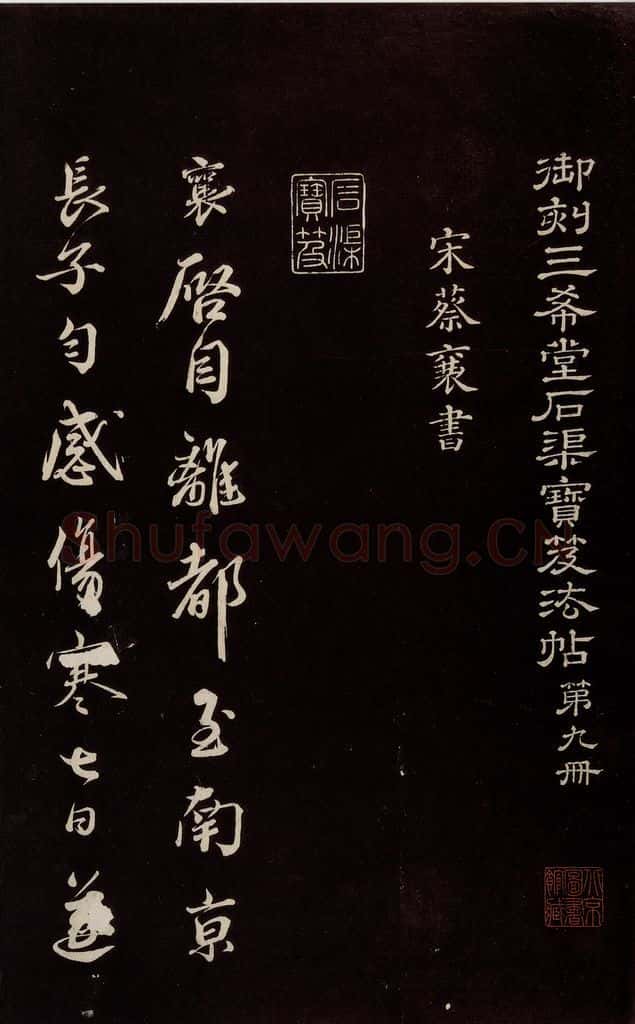 御刻三希堂石渠寶笈法帖第九冊
宋蔡襄書
石渠寶笈
襄啓自離都至南京
長子勻感傷寒七日遂
北京圖書館藏
Shufawang.CN